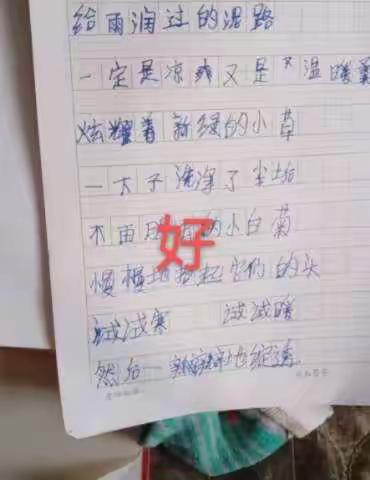 给雨润过的泥路
一定是凉爽又是温暖
炫耀着新绿的小草
一下子洗净了尘垢
不再胆怯的小白菊
慢慢地抬起它们的头
试试寒 试试暖
然后一瓣瓣地绽透
好